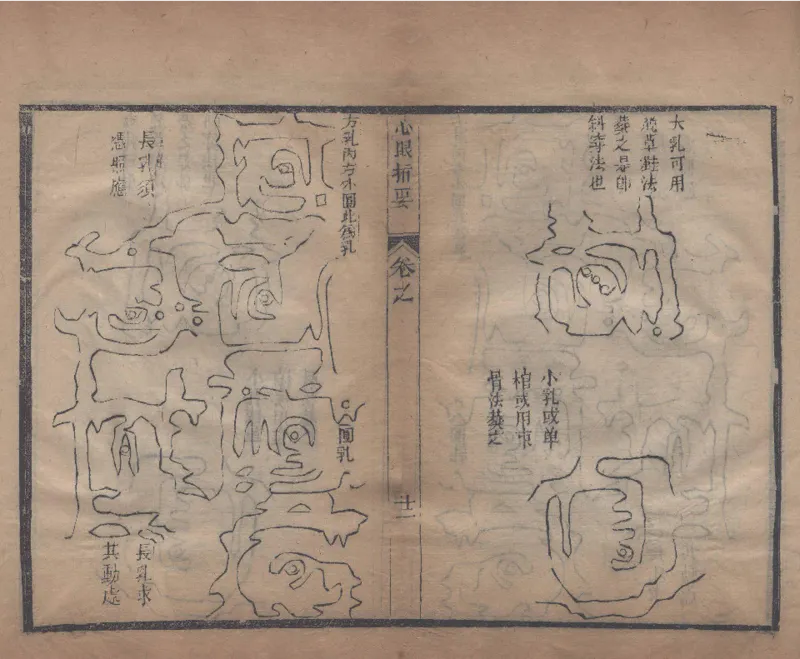 大乳可用
脫草鞋法
葬之是
斜 法也
小乳或单
棺或用束
骨法葬之
心眼指要
卷之
十一
方乳內方 圓此 乳
圓乳
長乳須
憑照應
長乳求
其動處